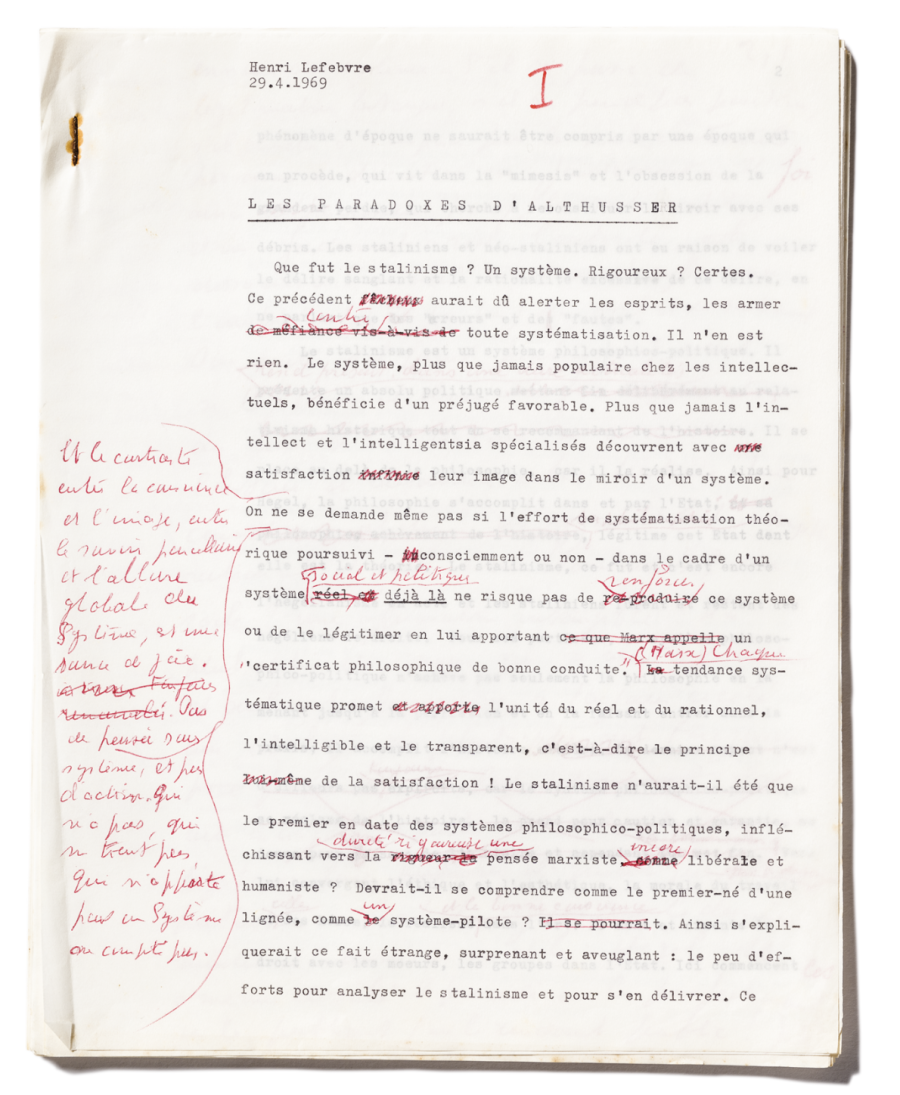 Henri Lefebvre
29.4.1969
I
2
LES PARADOXES D'ALTHUSSER
Que fut le stalinisme ? Un système. Rigoureux ? Certes.
Ce précédent aurait dû alerter les esprits, les armer
contre
de méfiance vis-à-vis de toute systématisation. Il n'en est
rien. Le système, plus que jamais populaire chez les intellec-
tuels, bénéficie d'un préjugé favorable. Plus que jamais l'in-
tellect et l'intelligentsia spécialisés découvrent avec
satisfaction leur image dans le miroir d'un système.
On ne se demande même pas si l'effort de systématisation théo-
rique poursuivi - consciemment ou non - dans le cadre d'un
social et politique renforcer
système réel et déjà là ne risque pas de re-produire ce système
ou de le légitimer en lui apportant ce que Marx appelle un
(Marx) Chaque
"certificat philosophique de bonne conduite." La tendance sys-
tématique promet et apporte l'unité du réel et du rationnel,
l'intelligible et le transparent, c'est-à-dire le principe
même de la satisfaction ! Le stalinisme n'aurait-il été que
le premier en date des systèmes philosophico-politiques, inflé-
dureté rigoureuse une encore
chissant vers la rigueur de pensée marxiste, comme libérale et
humaniste ? Devrait-il se comprendre comme le premier-né d'une
un
lignée, comme le système-pilote ? Il se pourrait. Ainsi s'expli-
querait ce fait étrange, surprenant et aveuglant : le peu d'ef-
forts pour analyser le stalinisme et pour s'en délivrer. Ce
Et le contraste
entre la conscience
et l'image, entre
le savoir parcellaire
et l'allure
globale du
Système, est une
source de joie.
Pas
de pensée sans
système, et pas
d'action. Qui
n'a pas, qui
ne tient pas
qui n'apporte
pas un Système
ne compte pas.